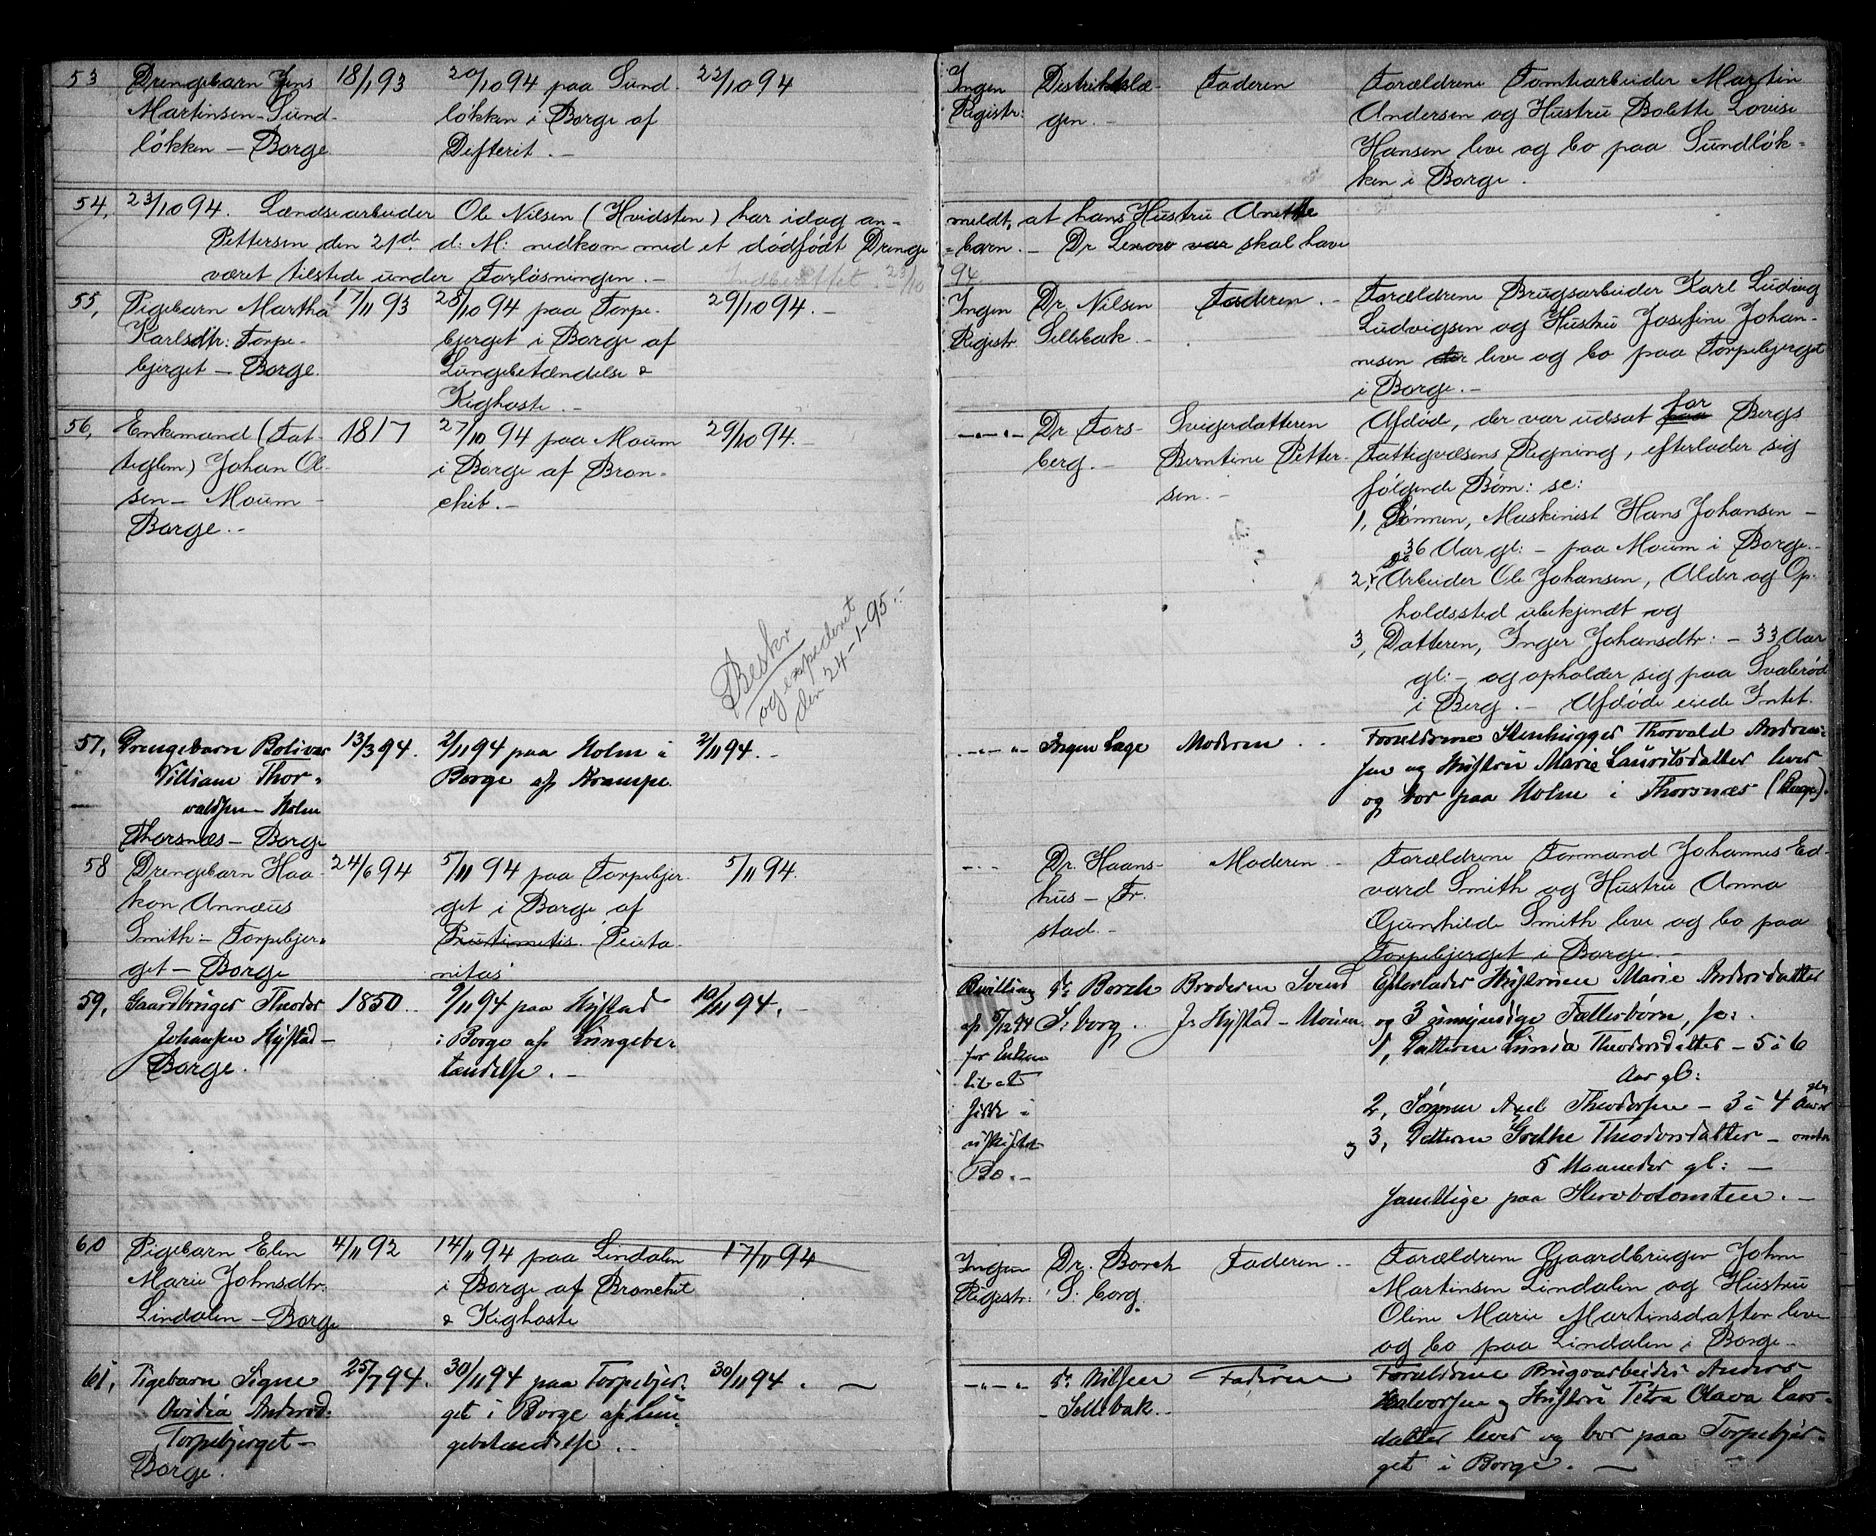 53 Drengebarn Jens 18/1 93 20/10 94 paa Sund- 22/10 94 Ingen Destriktslæ- Faderen Forældrene Tomtearbeider Martin
Martinsen - Sund- løkken i Borge af Registr: gen. - Andersen og Hustru Bolette Lovise
løkken - Borge Defterit. - Hansen leve og bo paa Sundløk-
ken i Borge.
54, 23/10 94. Lændsearbeider Ole Nilsen (Hvidsten) har idag an- meldt, at hans Hustru Anette
Pettersen den 21de d: M: nedkom med et dödfödt Drenge =barn. - Dr Lexow var skal have
været tilstede under Forløsningen. - Indberettet 23/10 94
55, Pigebarn Martha 17/11 93 28/10 94 paa Torpe- 29/10 94. - Ingen Dr. Nilsen Faderen. - Forældrene Brugsarbeider Karl Ludvig
Karlsdtr: Torpe- bjerget i Borge af Registr. Sellebak. - Ludvigsen og Hustru Josefine Johan-
bjerget - Borge. Lungebetændelse & nesen der leve og bo paa Torpebjerget
Kighoste. - i Borge. -
56, Enkemand (Fat- 1817 27/10 94 paa Moum 29/10 94. - -"-"- Dr Fors- Svigerdatteren Afdøde, der var udsat paa for Bergs
tiglem) Johan Ol- i Borge af Bron- berg. - Berntine Petter- Fattigvæsens Regning, efterlader sig
sen - Moum - chit. - sen. - følgende Børn: se:
Borge. - 1, Sønnen, Maskinist Hans Johansen -
36 Aar gl: - paa Moum i Borge. -
2, Do Arbeider Ole Johansen, Alder og Op-
holdssted ubekjendt og
3, Datteren, Inger Johansdtr: - 33 Aar
gl: - og opholder sig paa Svalerød
i Berg. - Afdøde eiede Intet.
Beskr
og expederet
den 24-1-95.-
57, Drengebarn Bolivar 13/3 94. 2/11 94 paa Holm i 2/11 94. - -"-"- Ingen Læge Moderen . . Forældrene Stenhugger Thorvald Andrea-
Villiam Thor- Borge af Krampe. sen og Hustru Marie Lauritsdatter lever
valdsen - Holm og bor paa Holm i Thorsnæs (Borge).
Thorsnæs - Borge
58 Drengebarn Haa- 24/6 94 5/11 94 paa Torpebjer- 5/11 94. -"- Dr. Haans- Moderen - Forældrene Formand Johannes Ed-
kon Annæus get i Borge af hus - Fr. vard Smith og Hustru Anna
Smith - Torpebjer- Peuta- stad. - Gunhilde Smith leve og bo paa
get - Borge nitas Torpebjerget i Borge. -
59, Gaardbruger Theodor 1850. 9/11 94 paa Hystad 10/11 94. - Bevilling Dr Borch Broderen Svend Efterlader Hustruen Marie Andersdatter
Johansen Hystad - i Borge af Lungebe- af 5/12 94 S: borg. J: Hystad - Moum og 3 umyndige Fællesbørn, se:
Borge. tændelse. - for Enken 1, Datteren Theodorsdatter - 5 à 6
til at Aar gl:
sidde i 2, Sønnen Axel Theodorsen - 3 à 4 Aar gl:
uskiftet og 3, Datteren Grethe Theodorsdatter - omtr
Bo. - 5 Maaneder gl: -
samtlige paa -
60 Pigebarn Elen 4/11 92 14/11 94 paa Lindalen 17/11 94 Ingen Dr. Borch Faderen - Forældrene Gaardbruger Johan
Marie Johnsdtr. i Borge af Bronchit Registr: S: borg. Martinsen Lindalen og Hustru
Lindalen - Borge & Kighoste Oline Marie Martinsdatter leve
og bo paa Lindalen i Borge -
61, Pigebarn Signe 25/7 94. 30/11 94 paa Torpebjer- 30/11 94. - -"-"- Dr Nilsen Faderen Forældrene Brugsarbeider Anders
Ovidia Andersd: get i Borge af Lun- - Sellebak. - Halvorsen og Hustru Petra Olava Lars-
Torpebjerget - gebetændelse. - datter lever og bor paa Torpebjer-
Borge. get i Borge. -